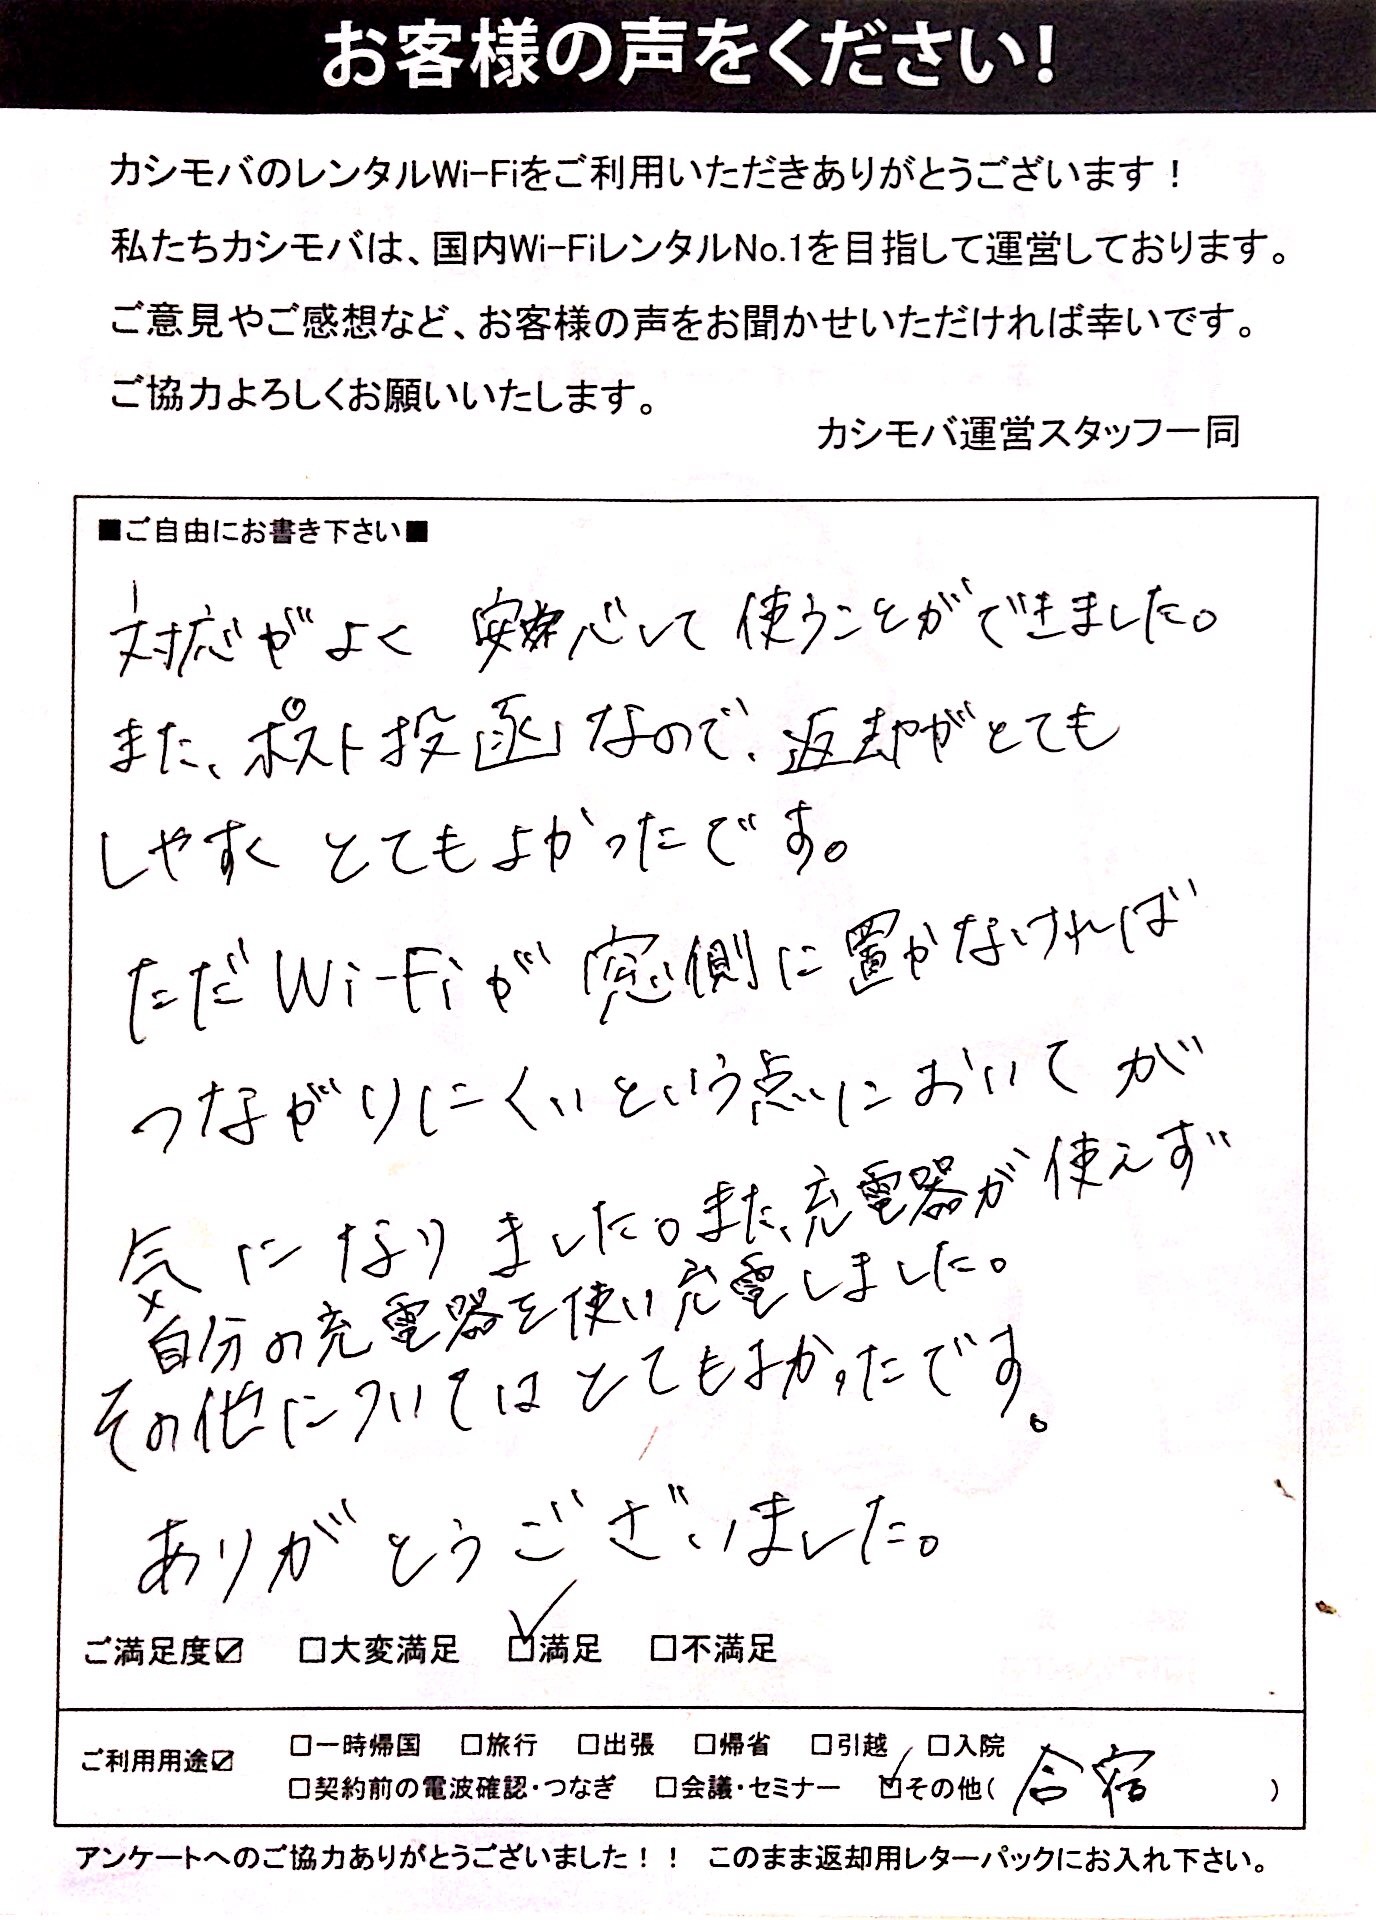 お客様の声をください!
カシモバのレンタルWi-Fiをご利用いただきありがとうございます！
私たちカシモバは、国内Wi-FiレンタルNo.1を目指して運営しております。
ご意見やご感想など、お客様の声をお聞かせいただければ幸いです。
ご協力よろしくお願いいたします。
カシモバ運営スタッフ一同
■ご自由にお書き下さい■
対応がよく 安心して 使うことができました。
また、ポスト投函なので、返却がとても
しやすく とてもよかったです。
ただWi-Fiが 窓側に置かなければ
つながりにくいという点においてが
気になりました。また、充電器が使えず
自分の充電器を使い充電しました。
その他についてはとてもよかったです。
ありがとうございました。
ご満足度☑ □大変満足 ☑満足 □不満足
ご利用用途☑ □一時帰国 □旅行 □出張 □帰省 □引越 □入院
□契約前の電波確認・つなぎ □会議・セミナー ☑その他( 合宿 )
アンケートへのご協力ありがとうございました！！ このまま返却用レターパックにお入れ下さい。